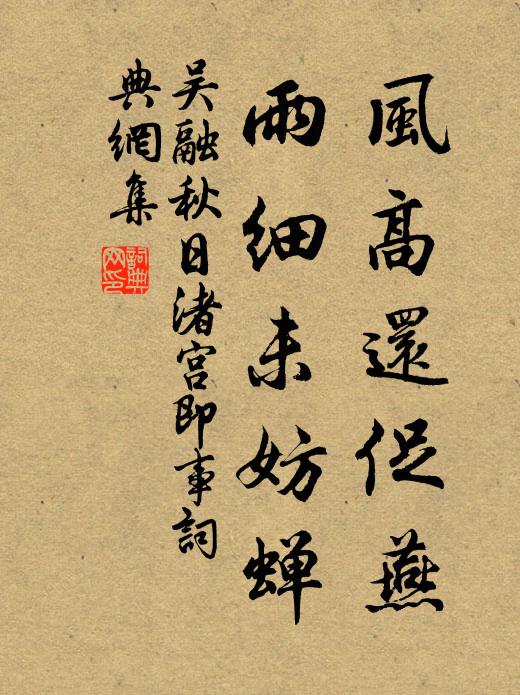 風高還促燕
雨細未妨蝉
吴融秋日渚宫即事詞
典網集
詞典网印